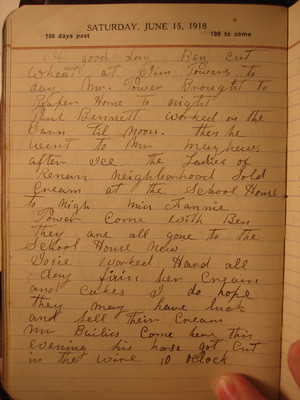 SATURDAY, JUNE 15, 1918
166 days past 199 to come
good day Ben cut
Wheat at Clim Powers to
day Mr. Power Brought to
Reaper Home to night
Paul Bennett worked on the
Barn til Noon. then he
went to Mr Mayhews
after Ice the Ladies of
Renan Neighborhood Sold
Cream at the School House
to nigh Miss Fannie
Power Come with Ben
they are all gone to the
School House Now
Dosie worked Hard all
day fixin her Cream
and Cakes I do hope
they may have luck
and sell their Cream
Mr Bailies Come hear this
evening his horse got Cut
in the wire 10 oClock